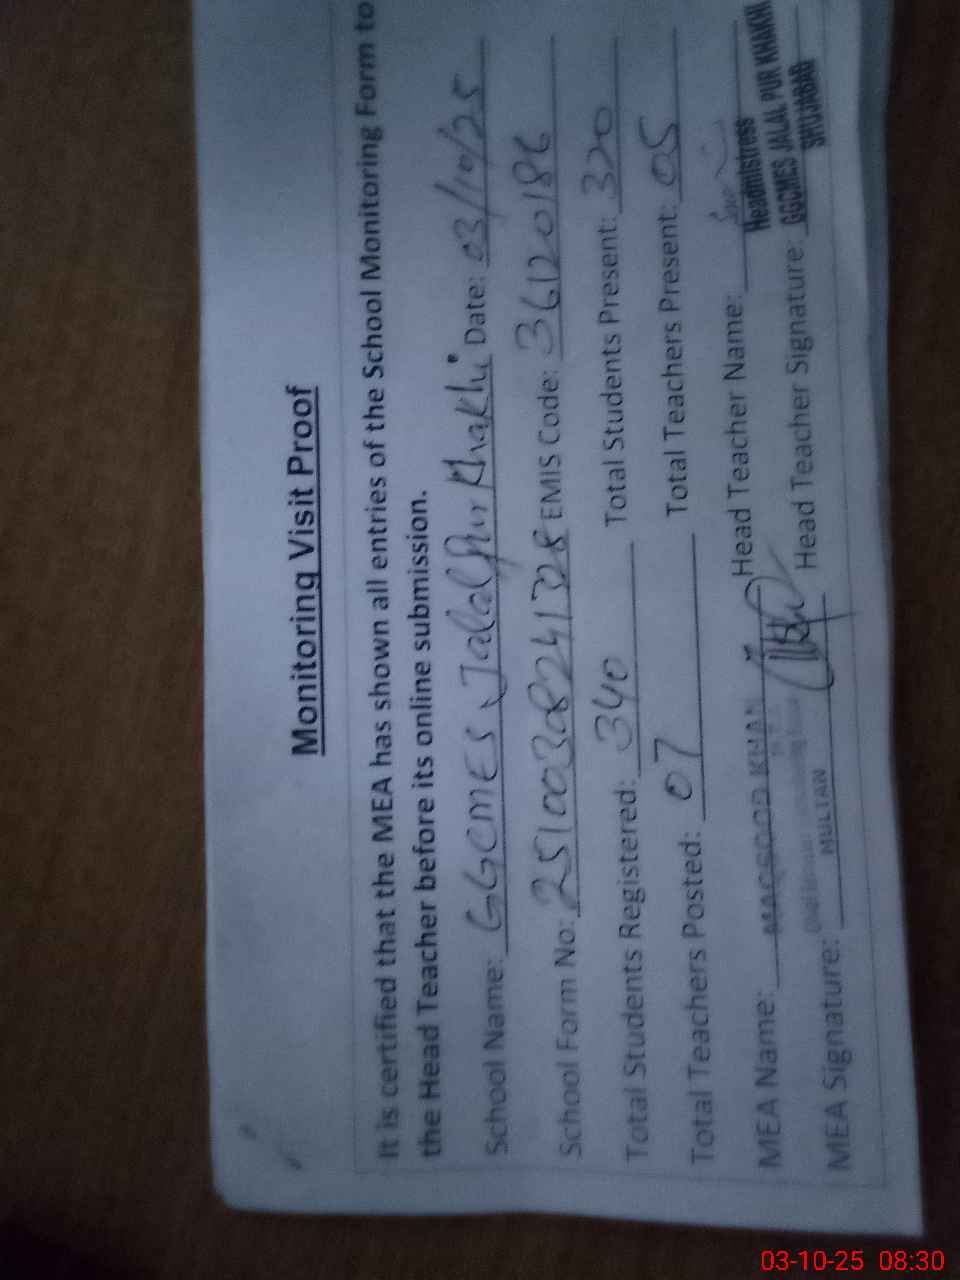 Monitoring Visit Proof
It is certified that the MEA has shown all entries of the School Monitoring Form to
the Head Teacher before its online submission.
School Name: GGCMES Jalalpur Khakhi Date: 03/10/25
School Form No: 25100308241328 EMIS Code: 36120186
Total Students Registered: 340 Total Students Present: 320
Total Teachers Posted: 07 Total Teachers Present: 05
MEA Name: MAQSOOD KHAN Head Teacher Name:
Headmistress
MEA Signature: MULTAN Head Teacher Signature: GGCMES JALAL PUR KHAKHI
SHUJABAD
03-10-25 08:30